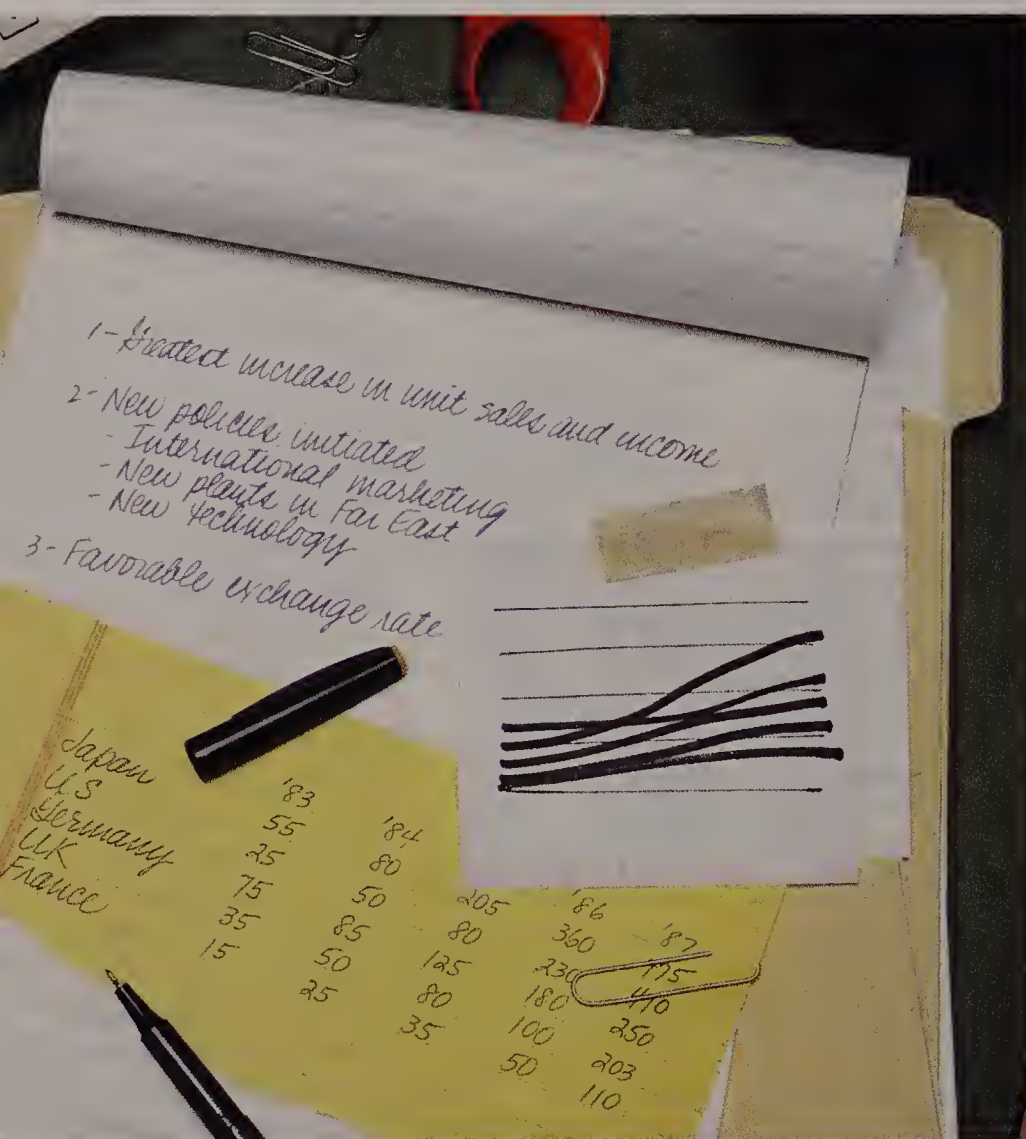 1- Greatest increase in unit sales and income
2- New policies initiated
- International marketing
- New plants in Far East
- New technology
3- Favorable exchange rate
'83 '84 '86 '87
Japan 55 80 205 360
U.S 25 50 80 230 410
Germany 75 85 125 180 250
UK 35 50 80 100 203
France 15 25 35 50 110